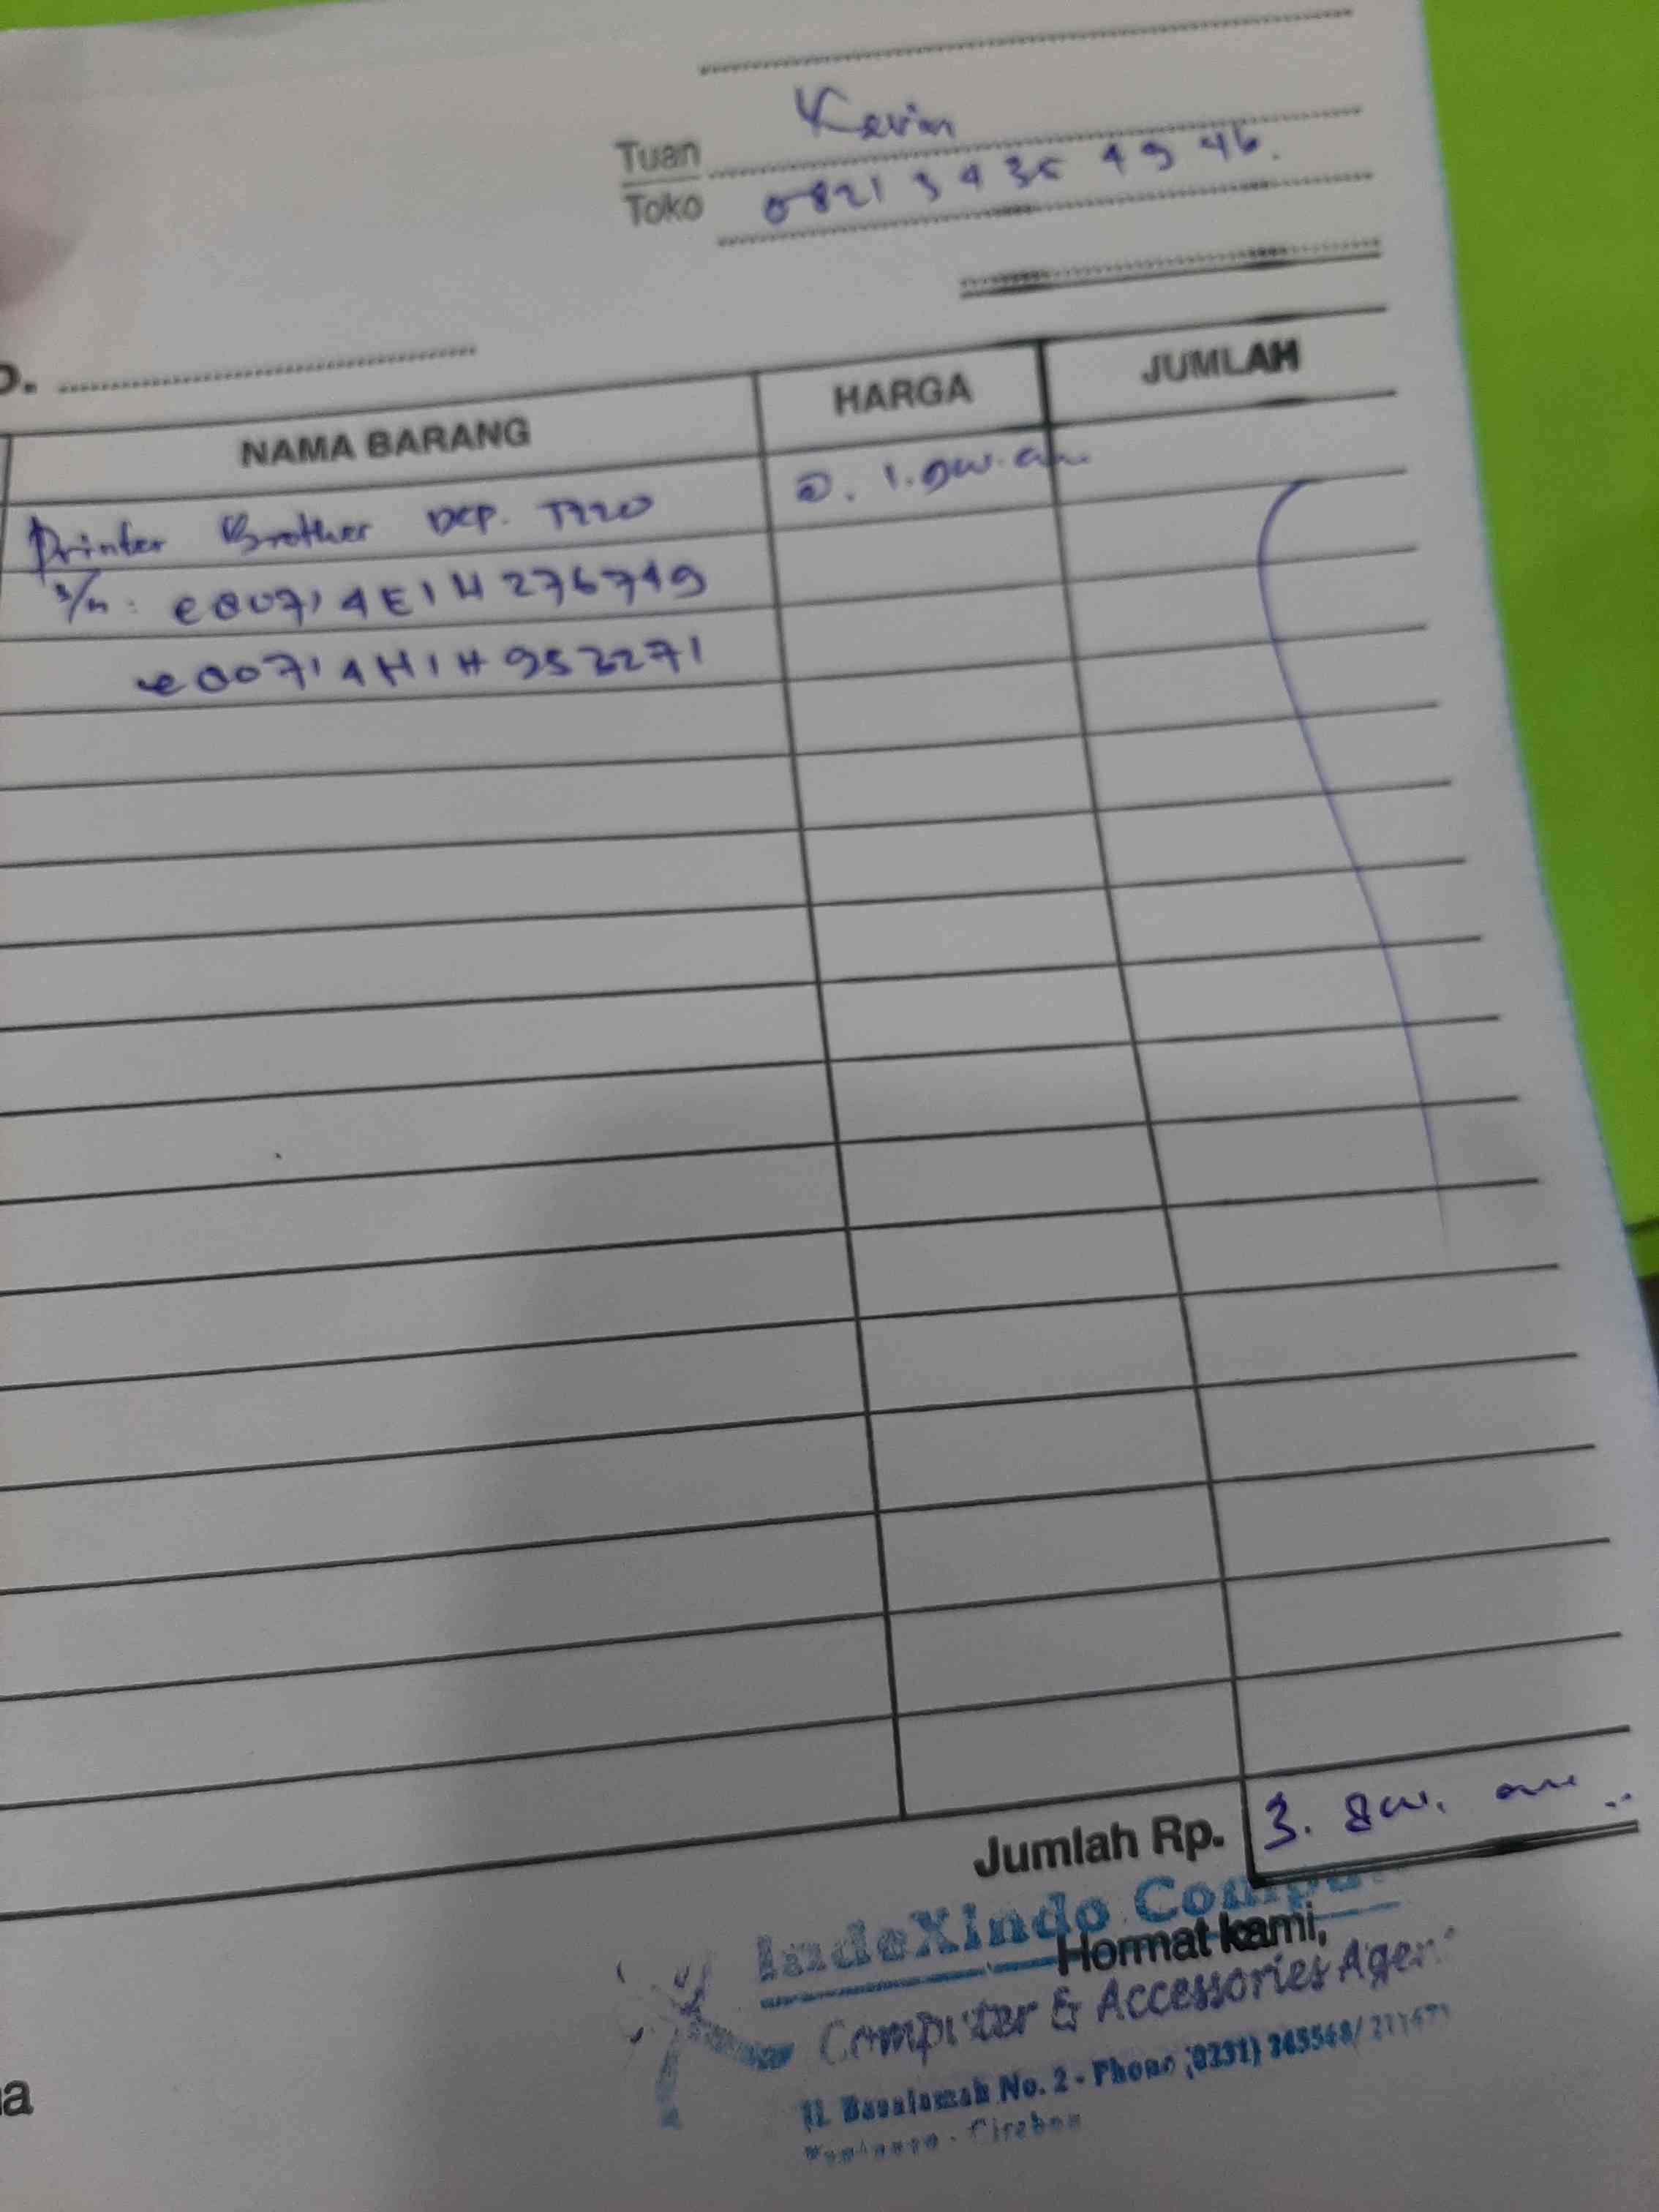 Kevin
Tuan
Toko
0821 3435 4946.
NAMA BARANG HARGA JUMLAH
Printer Brother DCP. T720 @. 1.900.000
S/n: E80714E1H276749
E80714H1H953271
Jumlah Rp. 3. 800. 000
IndeXindo
Hormat kami,
Computer & Accessories Agen
No. 2 - Phone (0231)
Cirebon